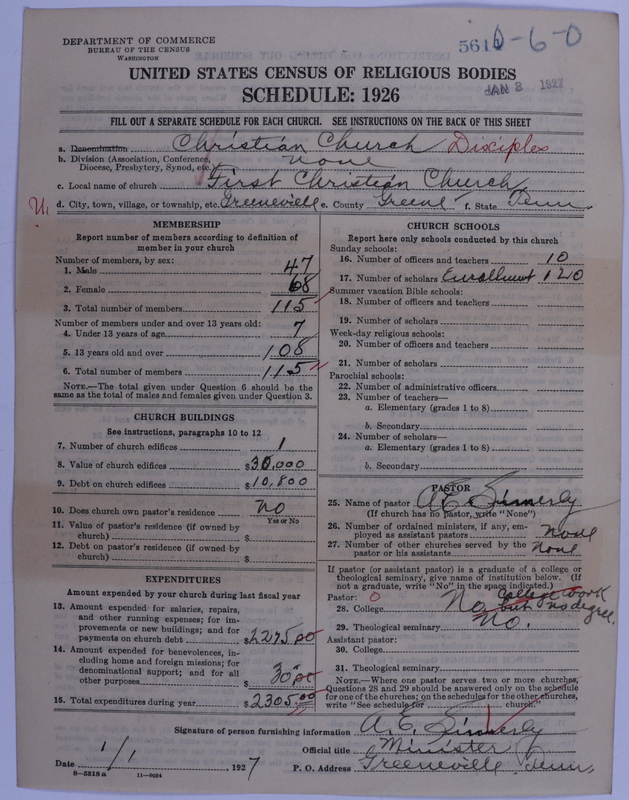 DEPARTMENT OF COMMERCE
BUREAU OF THE CENSUS
WASHINGTON
0-6-0
JAN 3 1927
UNITED STATES CENSUS OF RELIGIOUS BODIES
SCHEDULE: 1926
FILL OUT A SEPARATE SCHEDULE FOR EACH CHURCH. SEE INSTRUCTIONS ON THE BACK OF THIS SHEET
a. Denomination Christian Church Disciples
b. Division (Association, Conference, Diocese, Presbytery, Synod, etc.) none
c. Local name of church First Christian Church
d. City, town, village, or township, etc. Greeneville e. County Greene f. State Tenn.
MEMBERSHIP
Report number of members according to definition of
member in your church
Number of members, by sex:
1. Male 47
2. Female 68
3. Total number of members 115
Number of members under and over 13 years old:
4. Under 13 years of age 7
5. 13 years old and over 108
6. Total number of members 115
NOTE.—The total given under Question 6 should be
same as the total of males and females given under Question 3.
CHURCH BUILDINGS
See instructions, paragraphs 10 to 12
7. Number of church edifices 1
8. Value of church edifices $30,000
9. Debt on church edifices $10,800
10. Does church own pastor's residence? No
Yes or No
11. Value of pastor's residence (if owned by
church) $
12. Debt on pastor's residence (if owned by
church) $
EXPENDITURES
Amount expended by your church during last fiscal year
13. Amount expended for salaries, repairs,
and other running expenses; for im-
provements or new buildings; and for
payments on church debt $2275.00
14. Amount expended for benevolences, in-
cluding home and foreign missions; for
denominational support; and for all
other purposes $30.00
15. Total expenditures during year $2305.00
CHURCH SCHOOLS
Report here only schools conducted by this church
Sunday schools:
16. Number of officers and teachers 10
17. Number of scholars Enrollment 120
Summer vacation Bible schools:
18. Number of officers and teachers
19. Number of scholars
Week-day religious schools:
20. Number of officers and teachers
21. Number of scholars
Parochial schools:
22. Number of administrative officers
23. Number of teachers—
a. Elementary (grades 1 to 8)
b. Secondary
24. Number of scholars—
a. Elementary (grades 1 to 8)
b. Secondary
PASTOR
25. Name of pastor A. E. Simerly
(If church has no pastor, write "None")
26. Number of ordained ministers, if any, em-
ployed as assistant pastors none
27. Number of other churches served by the
pastor or his assistants none
If pastor (or assistant pastor) is a graduate of a college or
theological seminary, give name of institution below. (If
not a graduate, write "No" in the space indicated.)
Pastor: 0
28. College No College work but no degree.
29. Theological seminary No.
Assistant pastor:
30. College
31. Theological seminary
NOTE.—Where one pastor serves two or more churches,
Questions 28 and 29 should be answered only on the schedule
for one of the churches; on the schedules for the other churches,
write "See schedule for church."
Signature of person furnishing information A. E. Simerly
Official title Minister
Date 1/1 1927
P. O. Address Greeneville Tenn.
8—5518 a 11—9034